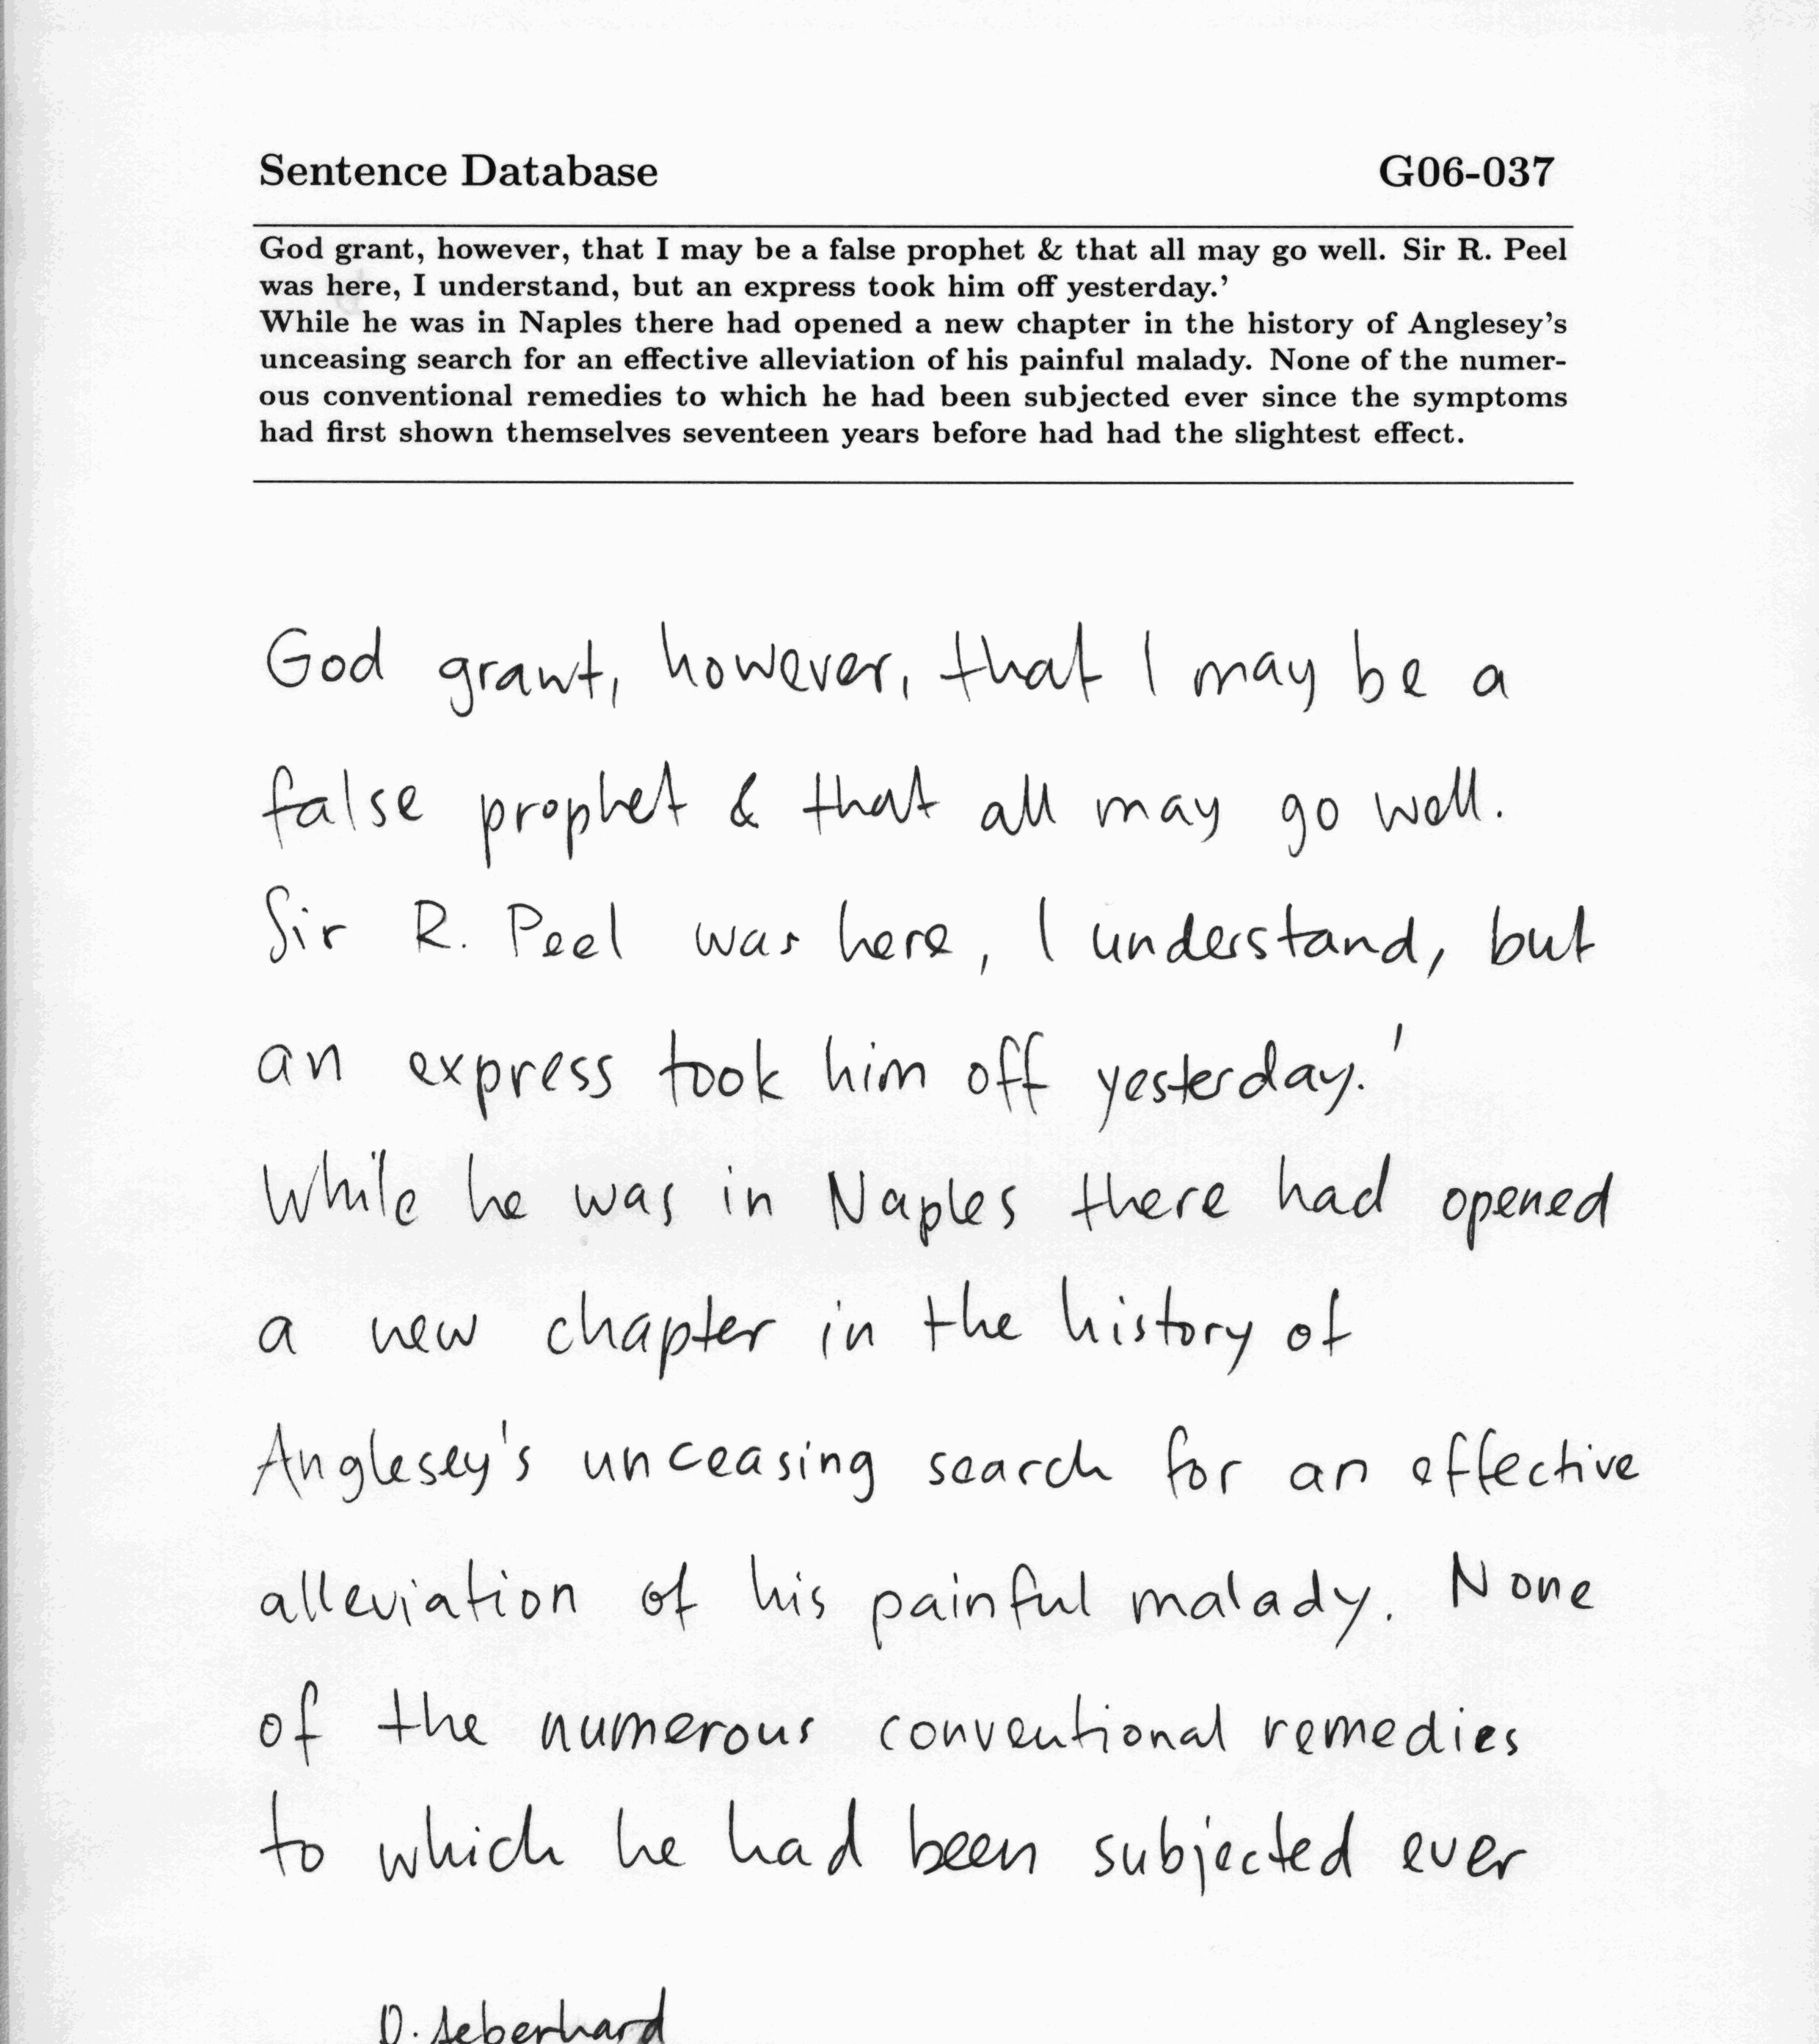 Sentence Database G06-037
God grant, however, that I may be a false prophet & that all may go well. Sir R. Peel
was here, I understand, but an express took him off yesterday.’
While he was in Naples there had opened a new chapter in the history of Anglesey’s
unceasing search for an effective alleviation of his painful malady. None of the numer-
ous conventional remedies to which he had been subjected ever since the symptoms
had first shown themselves seventeen years before had had the slightest effect.
God grant, however, that I may be a
false prophet & that all may go well.
Sir R. Peel was here, I understand, but
an express took him off yesterday.'
While he was in Naples there had opened
a new chapter in the history of
Anglesey's unceasing search for an effective
alleviation of his painful malady. None
of the numerous conventional remedies
to which he had been subjected ever
D. Aeberhard